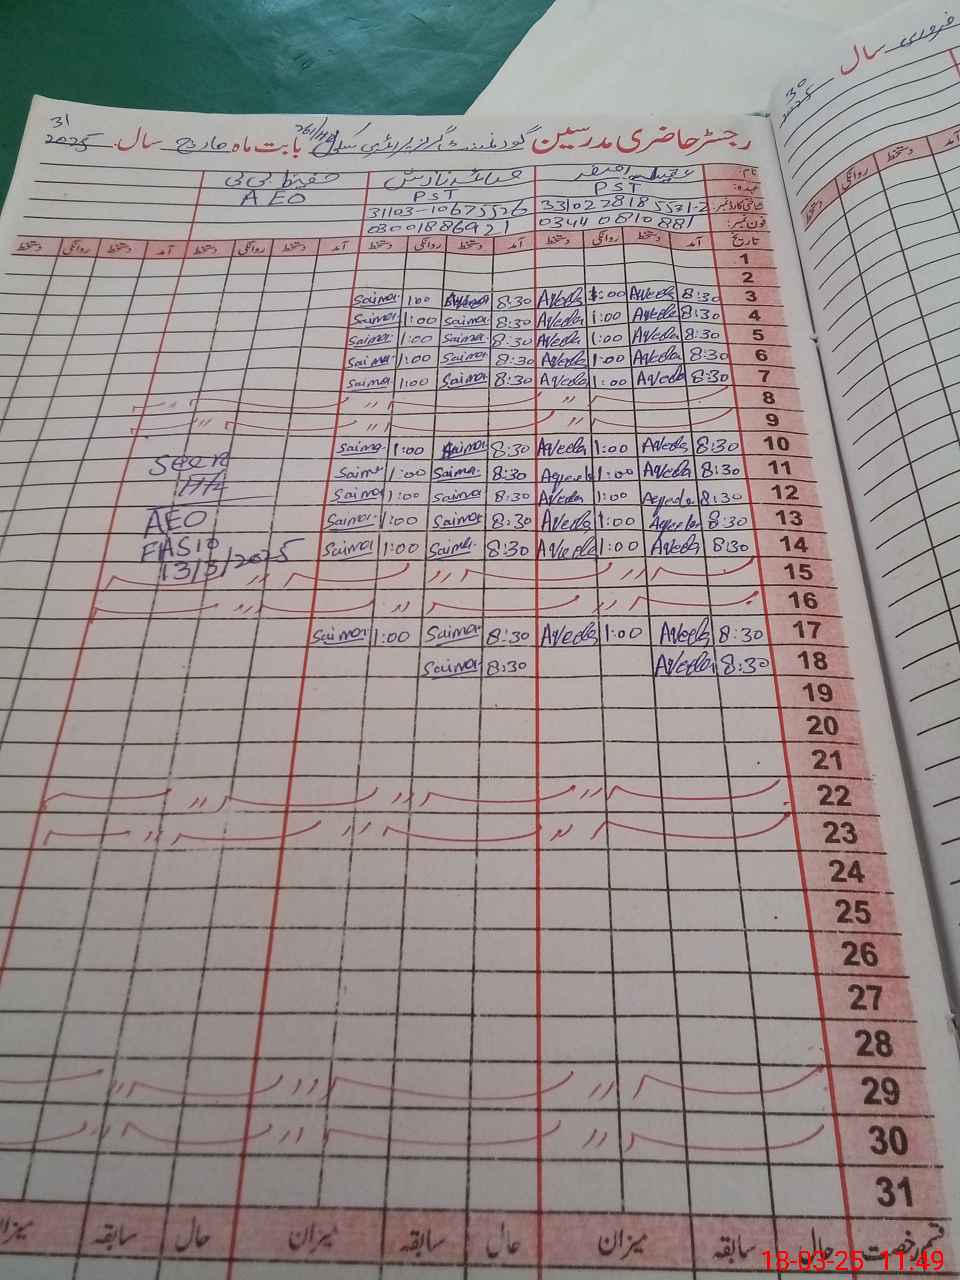 رجسٹر حاضری مدرسین گورنمنٹ گرلز پرائمری سکول بابت ماہ مارچ سال 2025
31
نام:
عہدہ: PST PST AEO
شناختی کارڈ نمبر: 31103-10675526
فون نمبر: 0344 0810881 03001886921
تاریخ آمد دستخط روانگی دستخط آمد دستخط روانگی دستخط آمد دستخط روانگی دستخط آمد دستخط روانگی دستخط
1
2
3 8:30 Aqeela 1:00 Aqeela 8:30 1:00 Saima
4 8:30 Aqeela 1:00 Aqeela 8:30 Saima 1:00 Saima
5 8:30 Aqeela 1:00 Aqeela 8:30 Saima 1:00 Saima
6 8:30 Aqeela 1:00 Aqeela 8:30 Saima 1:00 Saima
7 8:30 Aqeela 1:00 Aqeela 8:30 Saima 1:00 Saima
8 〃 〃
9 〃 〃
10 8:30 Aqeela 1:00 Aqeela 8:30 Saima 1:00 Saima
11 8:30 Aqeela 1:00 Aqeela 8:30 Saima 1:00 Saima
12 8:30 Aqeela 1:00 Aqeela 8:30 Saima 1:00 Saima
13 8:30 Aqeela 1:00 Aqeela 8:30 Saima 1:00 Saima
14 8:30 Aqeela 1:00 Aqeela 8:30 Saima 1:00 Saima
Seen
AEO
13/3/2025
15 〃 〃 〃
16 〃 〃 〃
17 8:30 Aqeela 1:00 Aqeela 8:30 Saima 1:00 Saima
18 8:30 Aqeela 8:30 Saima
19
20
21
22 〃 〃 〃
23 〃 〃 〃
24
25
26
27
28
29 〃 〃 〃
30 〃 〃 〃
31
قسم رخصت حال سابقہ میزان حال سابقہ میزان حال سابقہ میزان
فروری سال
آمد دستخط روانگی دستخط
18-03-25 11:49